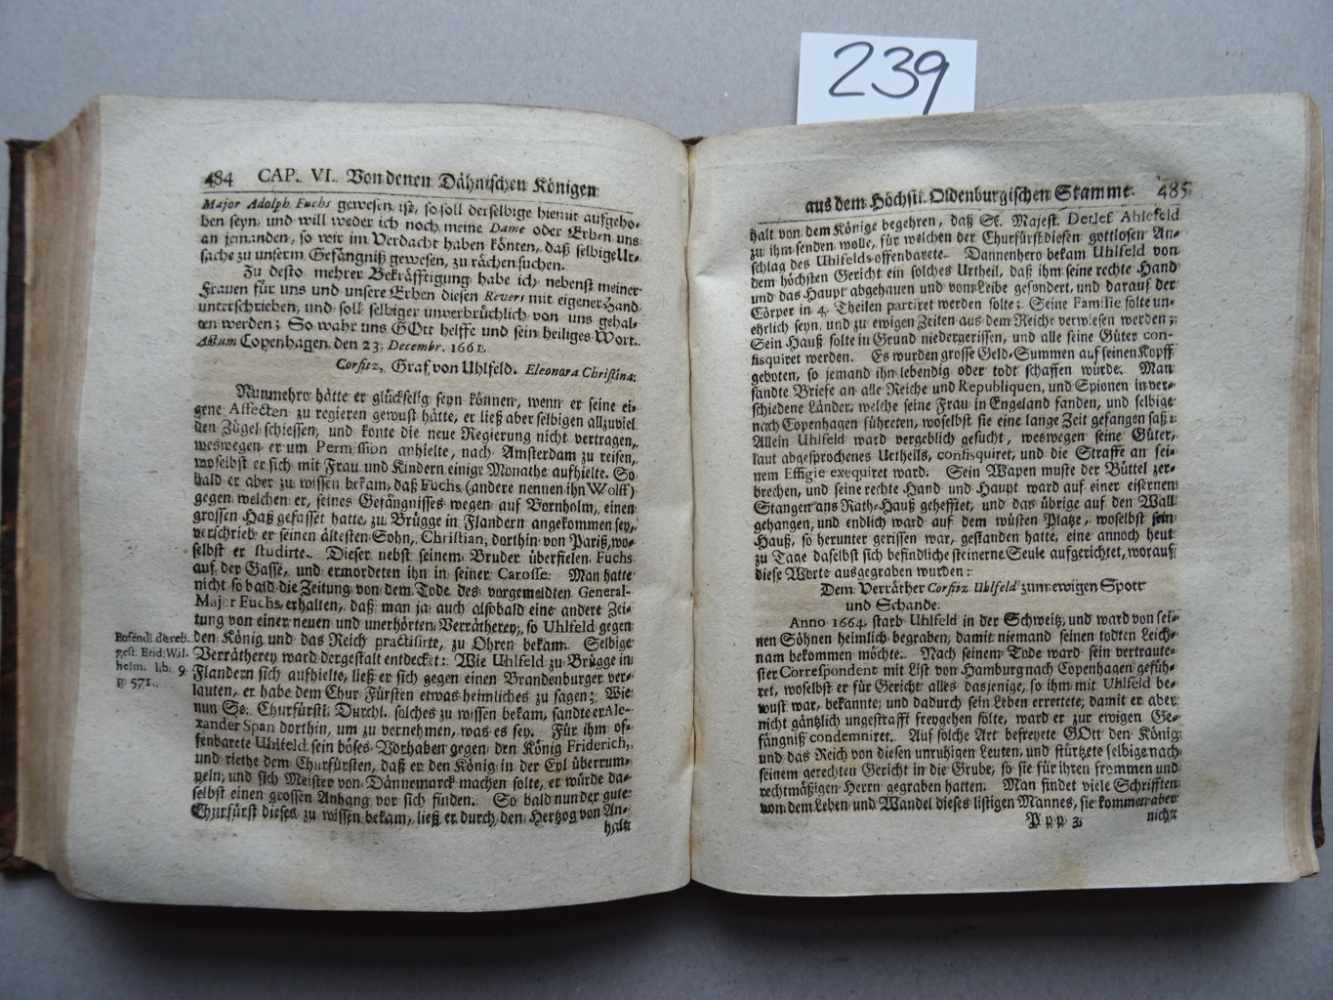 239
484 CAP. VI. Von denen Dähnischen Königen
Major Adolph Fuchs gewesen ist, so soll derselbige hiemit aufgeho-
ben seyn, und will weder ich noch meine Dame oder Erben uns
an jemanden, so wir im Verdacht haben könten, daß selbige Ur-
sache zu unserm Gefängniß gewesen, zu rächen suchen.
Zu desto mehrer Bekräfftigung habe ich nebenst meiner
Frauen für uns und unsere Erben diesen Revers mit eigener Hand
unterschrieben, und soll selbiger unverbrüchlich von uns gehal-
ten werden; So wahr uns GOtt helffe und sein heiliges Wort.
Actum Copenhagen den 23. Decembr. 1661.
Corfitz, Graf von Uhlfeld. Eleonora Christina.
Nunmehro hätte er glückselig seyn können, wenn er seine ei-
gene Affecten zu regieren gewust hätte, er ließ aber selbigen allzuviel
den Zügel schiessen, und konte die neue Regierung nicht vertragen,
weswegen er um Permission anhielte, nach Amsterdam zu reisen,
woselbst er sich mit Frau und Kindern einige Monathe aufhielte. So
bald er aber zu wissen bekam, daß Fuchs (andere nennen ihn Wolff)
gegen welchen er, seines Gefängnisses wegen auf Bornholm, einen
grossen Haß gefasset hatte, zu Brügge in Flandern angekommen sey,
verschrieb er seinen ältesten Sohn, Christian, dorthin von Pariß, wo-
selbst er studirte. Dieser nebst seinem Bruder überfielen Fuchs
auf der Gasse, und ermordeten ihn in seiner Carosse. Man hatte
nicht so bald die Zeitung von dem Tode des vorgemeldten General-
Major Fuchs erhalten, daß man ja auch alsobald eine andere Zei-
tung von einer neuen und unerhörten Verrätherey, so Uhlfeld gegen
den König und das Reich practisirte, zu Ohren bekam. Selbige
Verrätherey ward dergestalt entdecket: Wie Uhlfeld zu Brügge in
Flandern sich aufhielte, ließ er sich gegen einen Brandenburger ver-
lauten, er habe dem Chur-Fürsten etwas heimliches zu sagen; Wie
nun Se. Churfürstl. Durchl. solches zu wissen bekam, sandte er Ale-
xander Span dorthin, um zu vernehmen, was es sey. Für ihm of-
fenbarete Uhlfeld sein böses Vorhaben gegen den König Friderich,
und riethe dem Churfürsten, daß er den König in der Eyl überrum-
peln, und sich Meister von Dännemarck machen solte, er würde da-
selbst einen grossen Anhang vor sich finden. So bald nun der gute
Churfürst dieses zu wissen bekam, ließ er durch den Hertzog von An-
halt
Bufendl de reb.
gest. Frid. Wil-
helm. lib. 9.
p. 571.
aus dem Höchstl. Oldenburgischen Stamme. 485
halt von dem Könige begehren, daß Se. Majest. Detlef Ahlefeld
zu ihm senden wolle, für welchen der Churfürst diesen gottlosen An-
schlag des Uhlfelds offenbarete. Dannenhero bekam Uhlfeld von
dem höchsten Gericht ein solches Urtheil, daß ihm seine rechte Hand
und das Haupt abgehauen und vom Leibe gesondert, und darauf der
Cörper in 4. Theilen partiret werden solte; Seine Familie solte un-
ehrlich seyn, und zu ewigen Zeiten aus dem Reiche verwiesen werden;
Sein Hauß solte in Grund niedergerissen, und alle seine Güter con-
fisquiret werden. Es wurden grosse Geld-Summen auf seinen Kopff
geboten, so jemand ihn lebendig oder todt schaffen würde. Man
sandte Briefe an alle Reiche und Republiquen, und Spionen in ver-
schiedene Länder, welche seine Frau in Engeland fanden, und selbige
nach Copenhagen führeten, woselbst sie eine lange Zeit gefangen saß:
Allein Uhlfeld ward vergeblich gesucht, weswegen seine Güter,
laut abgesprochenes Urtheils, confisquiret, und die Straffe an sei-
nem Effigie exequiret ward. Sein Wapen muste der Büttel zer-
brechen, und seine rechte Hand und Haupt ward auf einer eisernen
Stangen ans Rath-Hauß gehefftet, und das übrige auf den Wall
gehangen, und endlich ward auf dem wüsten Platze, woselbst sein
Hauß, so herunter gerissen war, gestanden hatte, eine annoch heut
zu Tage daselbst sich befindliche steinerne Seule aufgerichtet, worauf
diese Worte ausgegraben wurden:
Dem Verräther Corfitz Uhlfeld zum ewigen Spott
und Schande.
Anno 1664. starb Uhlfeld in der Schweitz, und ward von sei-
nen Söhnen heimlich begraben, damit niemand seinen todten Leich-
nam bekommen möchte. Nach seinem Tode ward sein vertraute-
ster Correspondent mit List von Hamburg nach Copenhagen gefüh-
ret, woselbst er für Gericht alles dasjenige, so ihm mit Uhlfeld be-
wust war, bekannte, und dadurch sein Leben errettete; damit er aber
nicht gäntzlich ungestrafft freygehen solte, ward er zur ewigen Ge-
fängniß condemniret. Auf solche Art befreyete GOtt den König
und das Reich von diesen unruhigen Leuten, und stürtzete selbige nach
seinem gerechten Gericht in die Grube, so sie für ihren frommen und
rechtmäßigen Herrn gegraben hatten. Man findet viele Schrifften
von dem Leben und Wandel dieses listigen Mannes, sie kommen aber
Ppp 3 nicht